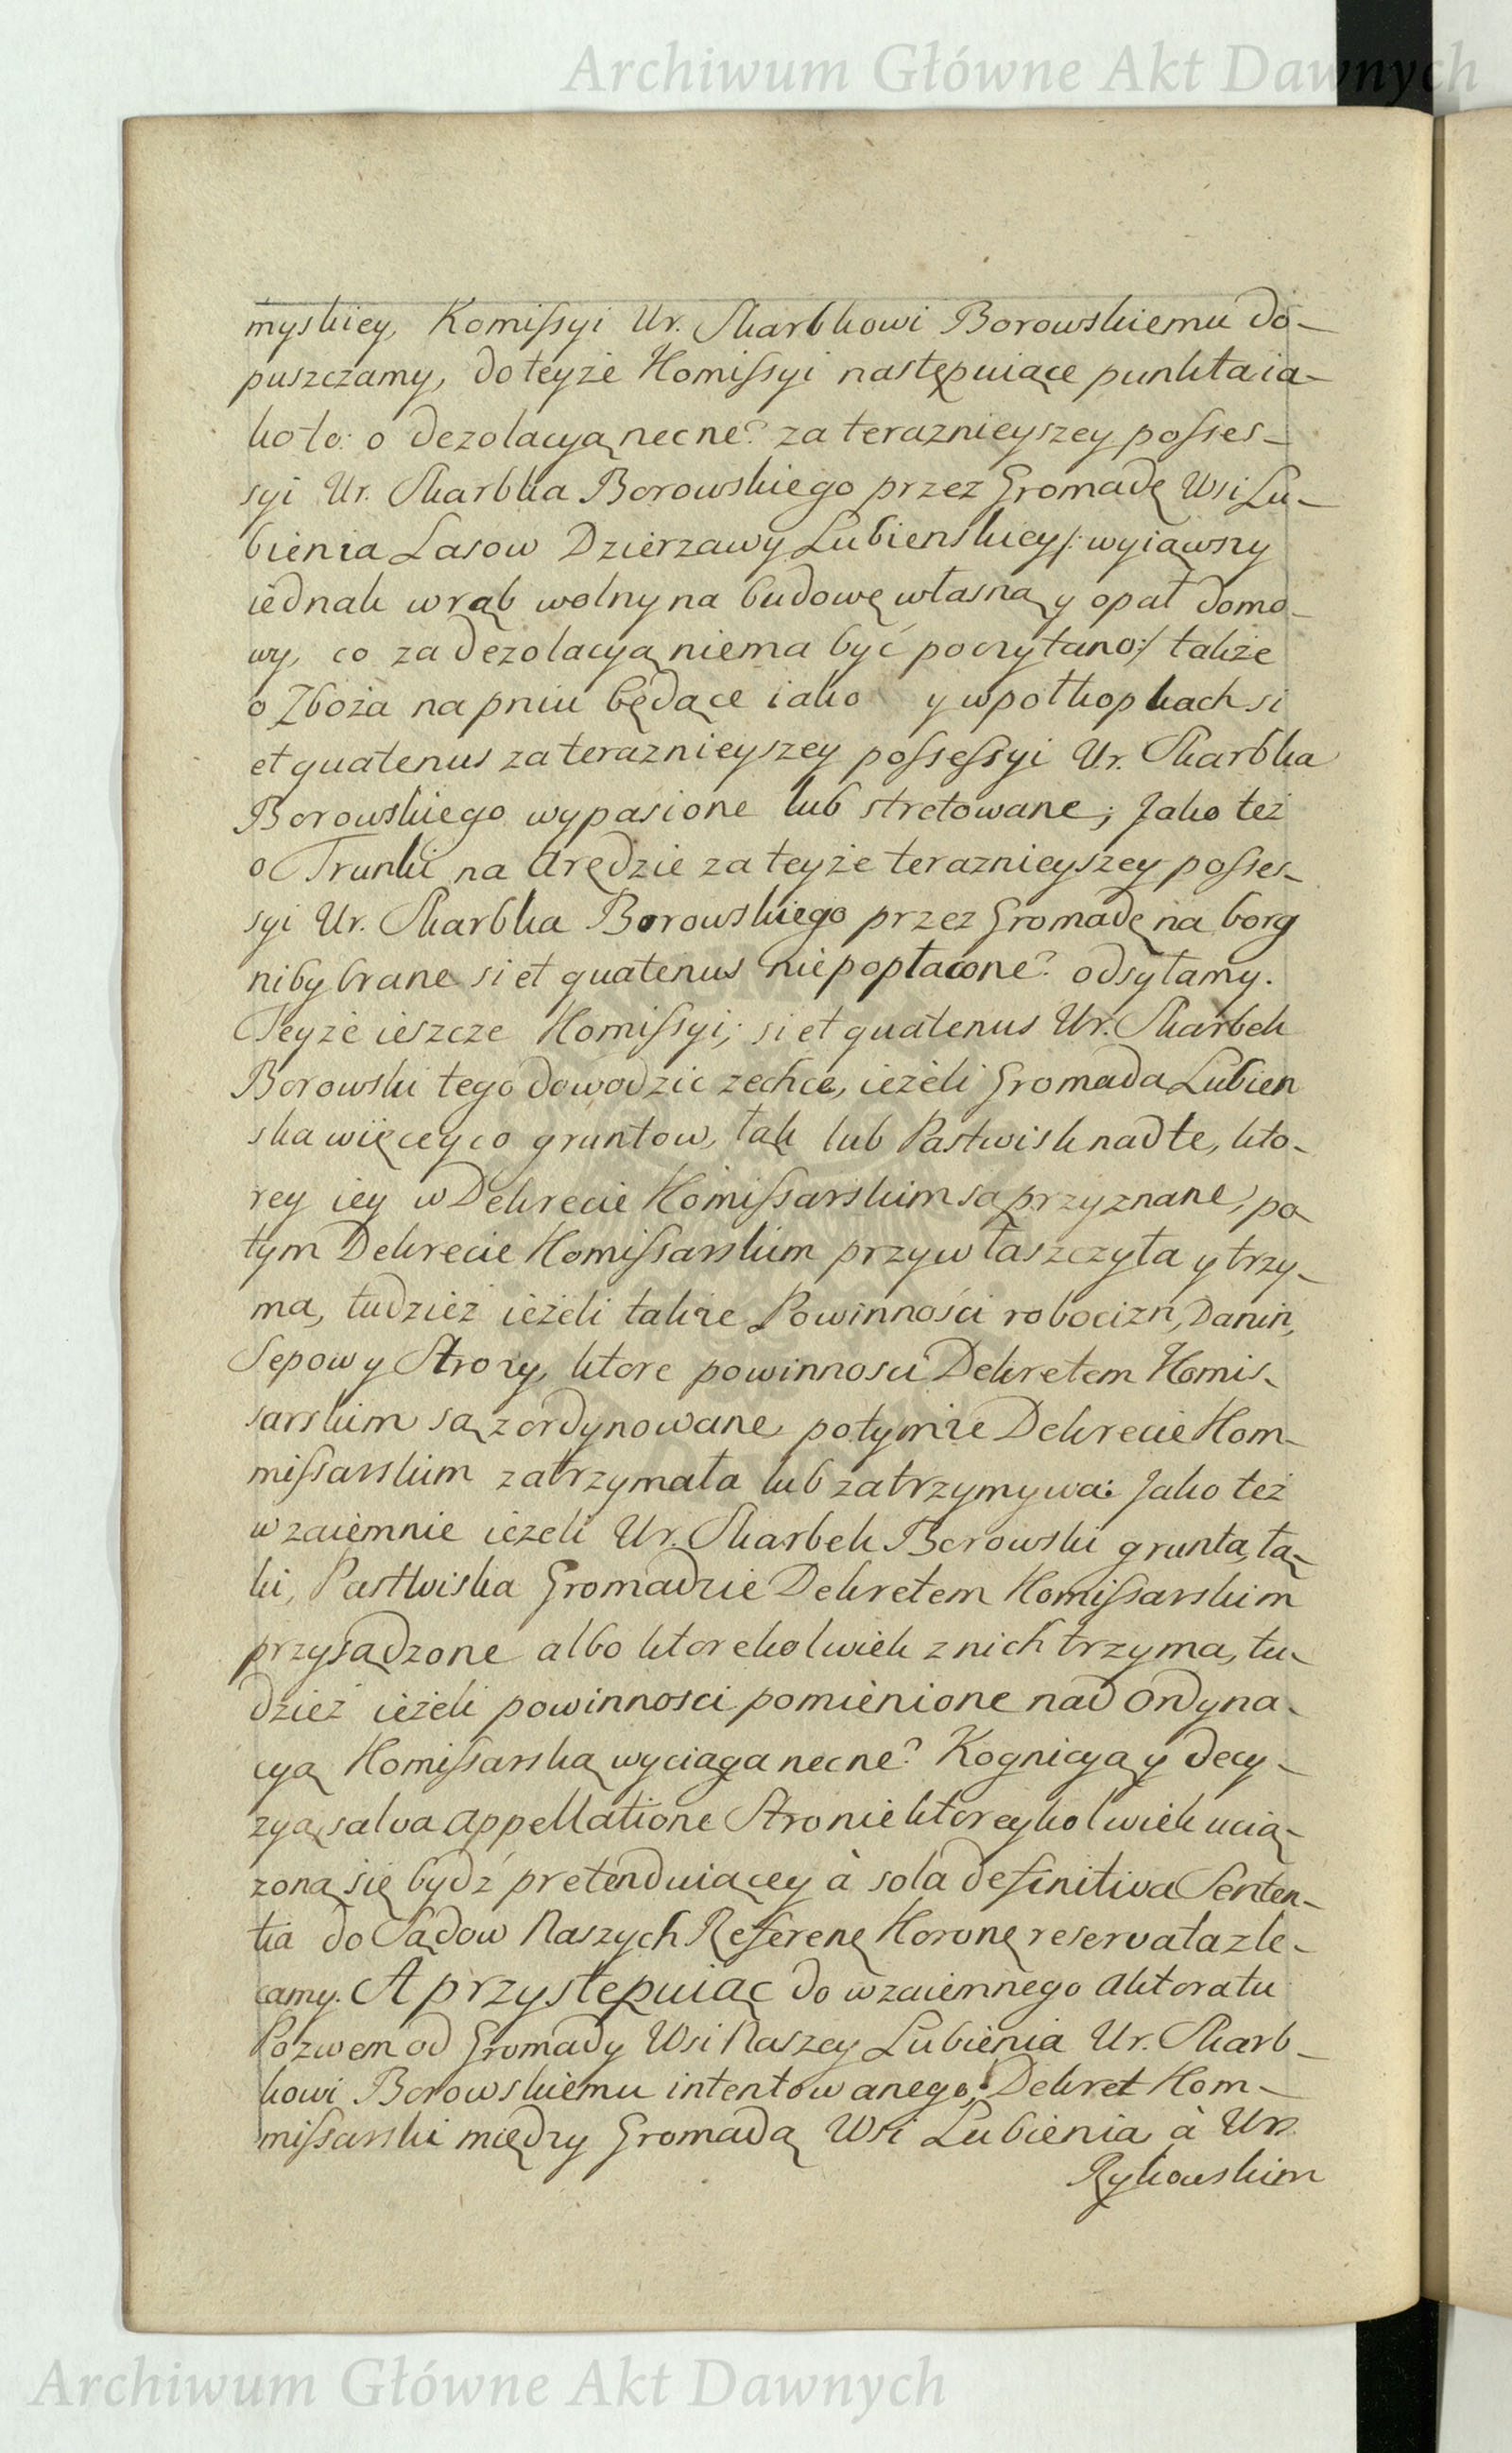 Archiwum Główne Akt Dawnych
myskiey, Komissyi Ur. Skarbkowi Borowskiemu do-
puszczamy, do teyże Komissyi następuiące punkta ia-
ko to: o dezolacyą necne? za teraznieyszey posses-
syi Ur. Skarbka Borowskiego przez Gromadę Wsi Lu-
bienia Lasow Dzierzawy Lubienskiey /: wyiąwszy
iednak wrąb wolny na budowę własną y opał domo-
wy, co za dezolacyą niema być poczytano :/ także
o Zboża na pniu będące iako y w połkopkach si
et quatenus za teraznieyszey possessyi Ur. Skarbka
Borowskiego wypasione lub stretowane; Jako też
o Trunki na Arędzie za teyże teraznieyszey posses-
syi Ur. Skarbka Borowskiego przez Gromadę na borg
niby brane si et quatenus niepopłacone? odsyłamy.
Teyże ieszcze Komissyi; si et quatenus Ur. Skarbek
Borowski tego dowodzic zechce, ieżeli Gromada Lubien
ska więcey co gruntow, łąk lub Pastwisk nad te, kto-
rey iey w Dekrecie Komissarskim są przyznane, po
tym Dekrecie Komissarskim przywłaszczyła y trzy-
ma, tudzież ieżeli także Powinności robocizn, Danin,
Sepow y Stroży, ktore powinnosci Dekretem Komis-
sarskim są zordynowane po tymże Dekrecie Kom-
missarskim zatrzymała lub zatrzymywa: Jako też
wzaiemnie ieżeli Ur. Skarbek Borowski grunta, łą-
ki, Pastwiska Gromadzie Dekretem Komissarskim
przysądzone albo ktorekolwiek z nich trzyma, tu-
dzież ieżeli powinnosci pomienione nad Ordyna-
cyą Komissarską wyciąga necne? Kognicyą y decy-
zyą salva appellatione Stronie ktoreykolwiek ucią-
zoną się bydź pretenduiącey à sola definitiva Senten-
tia do Sądow Naszych Referenę Koronę reservata zle-
camy. A przystępuiąc do wzaiemnego aktoratu
Pozwem od Gromady Wsi Naszey Lubienia Ur. Skarb-
kowi Borowskiemu intentowanego; Dekret Kom-
missarski między Gromadą Wsi Lubienia à Urr.
Rykowskim
Archiwum Główne Akt Dawnych